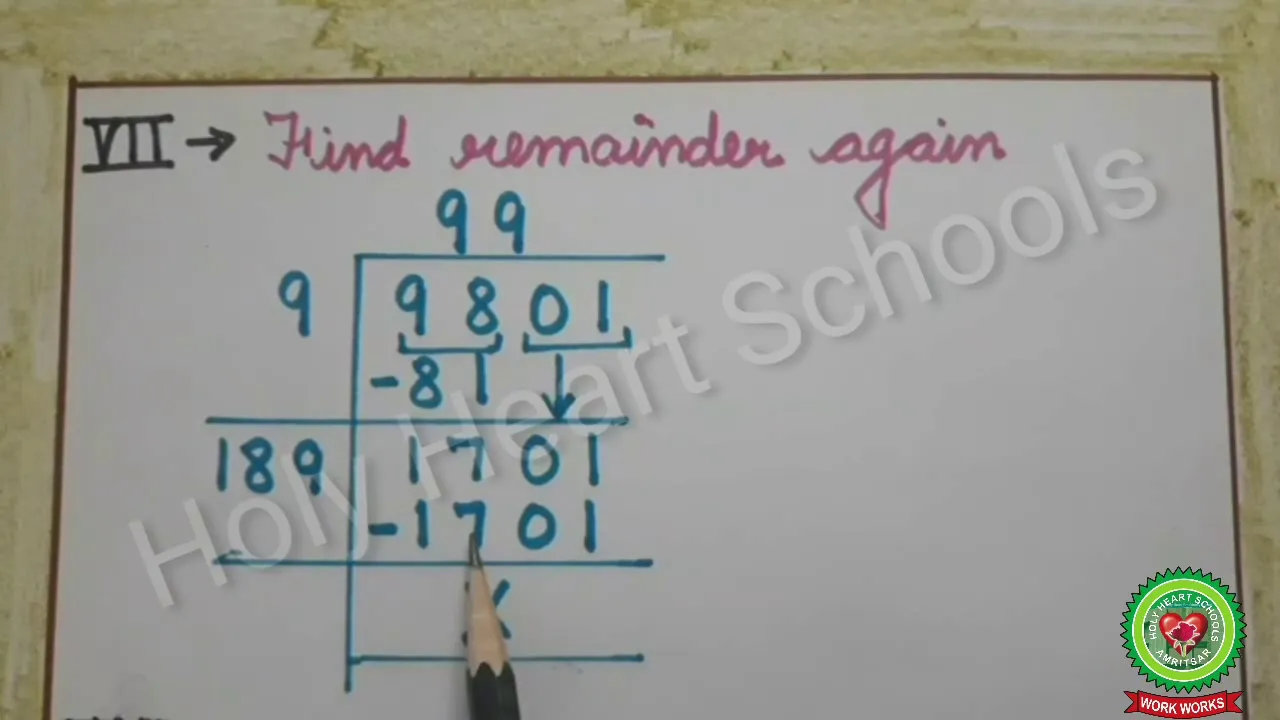 VII → Find remainder again
99
9 9801
-81
189 1701
-1701
x
Holy Heart Schools
HOLY HEART SCHOOLS
AMRITSAR
WORK WORKS